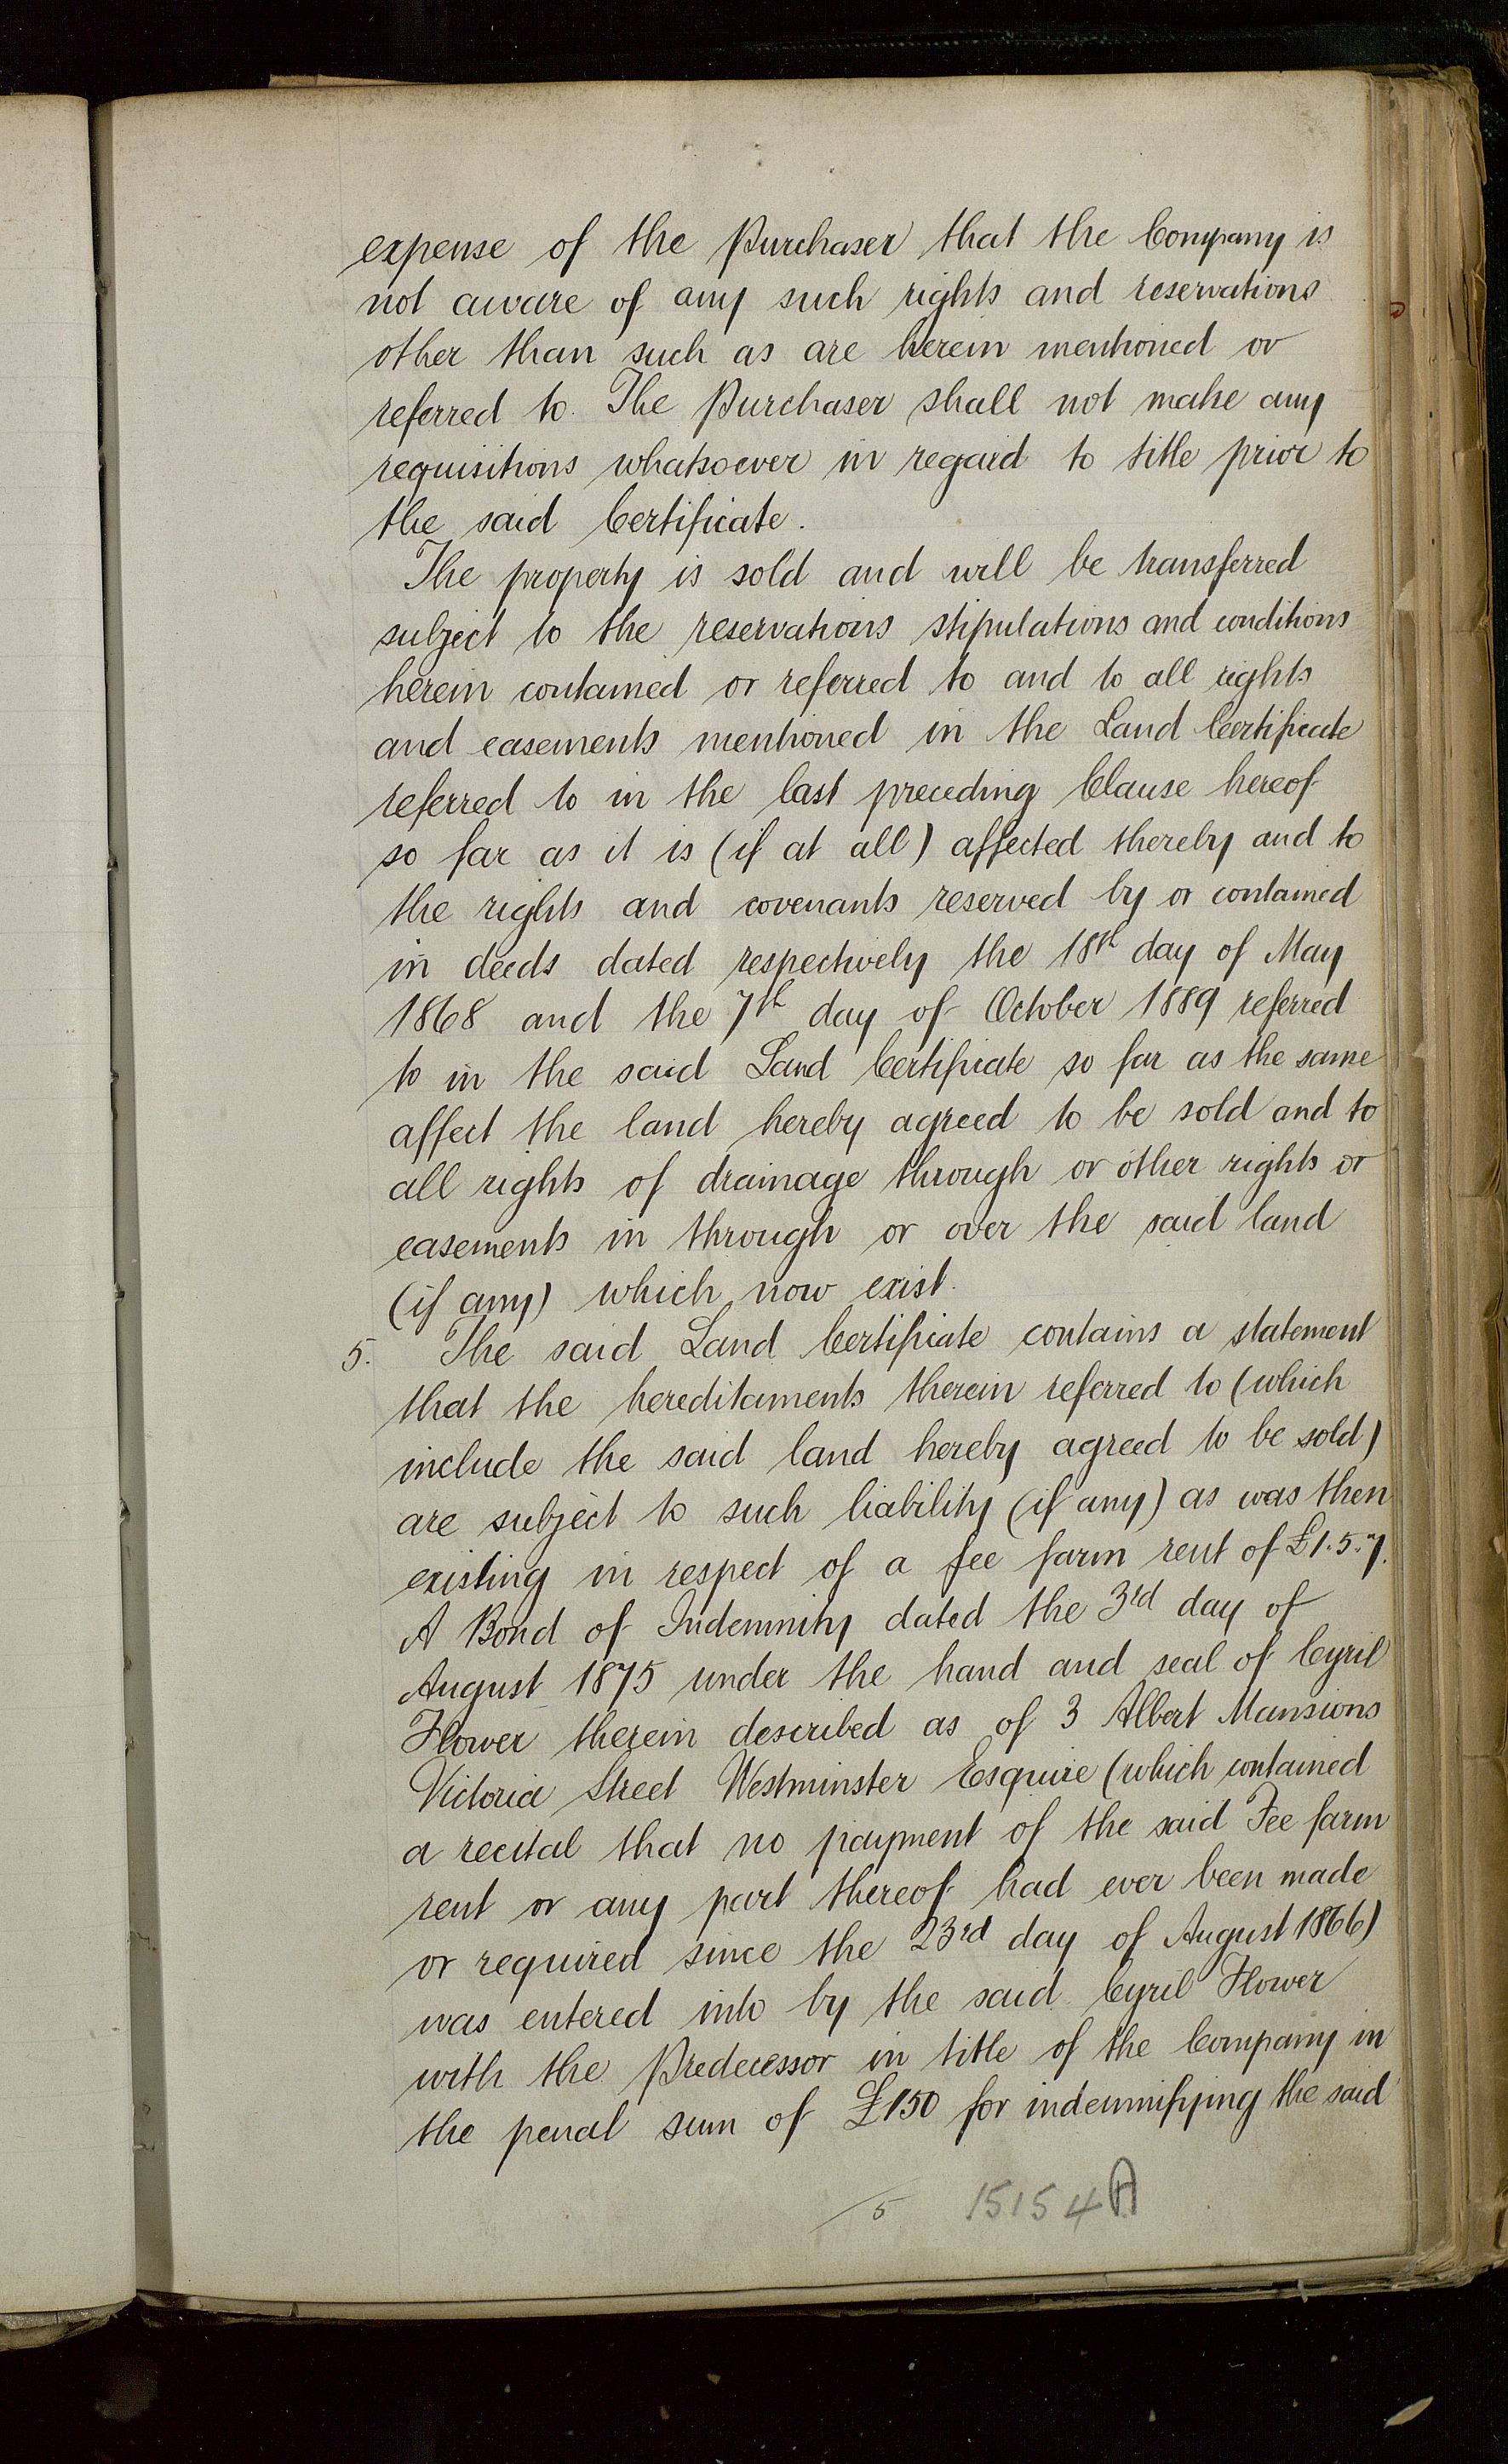 expense of the Purchaser that the Company is
not aware of any such rights and reservations
other than such as are herein mentioned or
referred to. The Purchaser shall not make any
requisitions whatsoever in regard to title prior to
the said Certificate.
The property is sold and will be transferred
subject to the reservations stipulations and conditions
herein contained or referred to and to all rights
and easements mentioned in the Land Certificate
referred to in the last preceding Clause hereof
so far as it is (if at all) affected thereby and to
the rights and covenants reserved by or contained
in deeds dated respectively the 18th day of May
1868 and the 7th day of October 1889 referred
to in the said Land Certificate so far as the same
affect the land hereby agreed to be sold and to
all rights of drainage through or other rights or
easements in through or over the said land
(if any) which now exist.
5. The said Land Certificate contains a statement
that the hereditaments therein referred to (which
include the said land hereby agreed to be sold)
are subject to such liability (if any) as was then
existing in respect of a fee farm rent of £1.5.7.
A Bond of Indemnity dated the 3rd day of
August 1875 under the hand and seal of Cyril
Flower therein described as of 3 Albert Mansions
Victoria Street Westminster Esquire (which contained
a recital that no payment of the said Fee farm
rent or any part thereof had ever been made
or required since the 23rd day of August 1866)
was entered into by the said Cyril Flower
with the Predecessor in title of the Company in
the penal sum of £150 for indemnifying the said
5 15154A